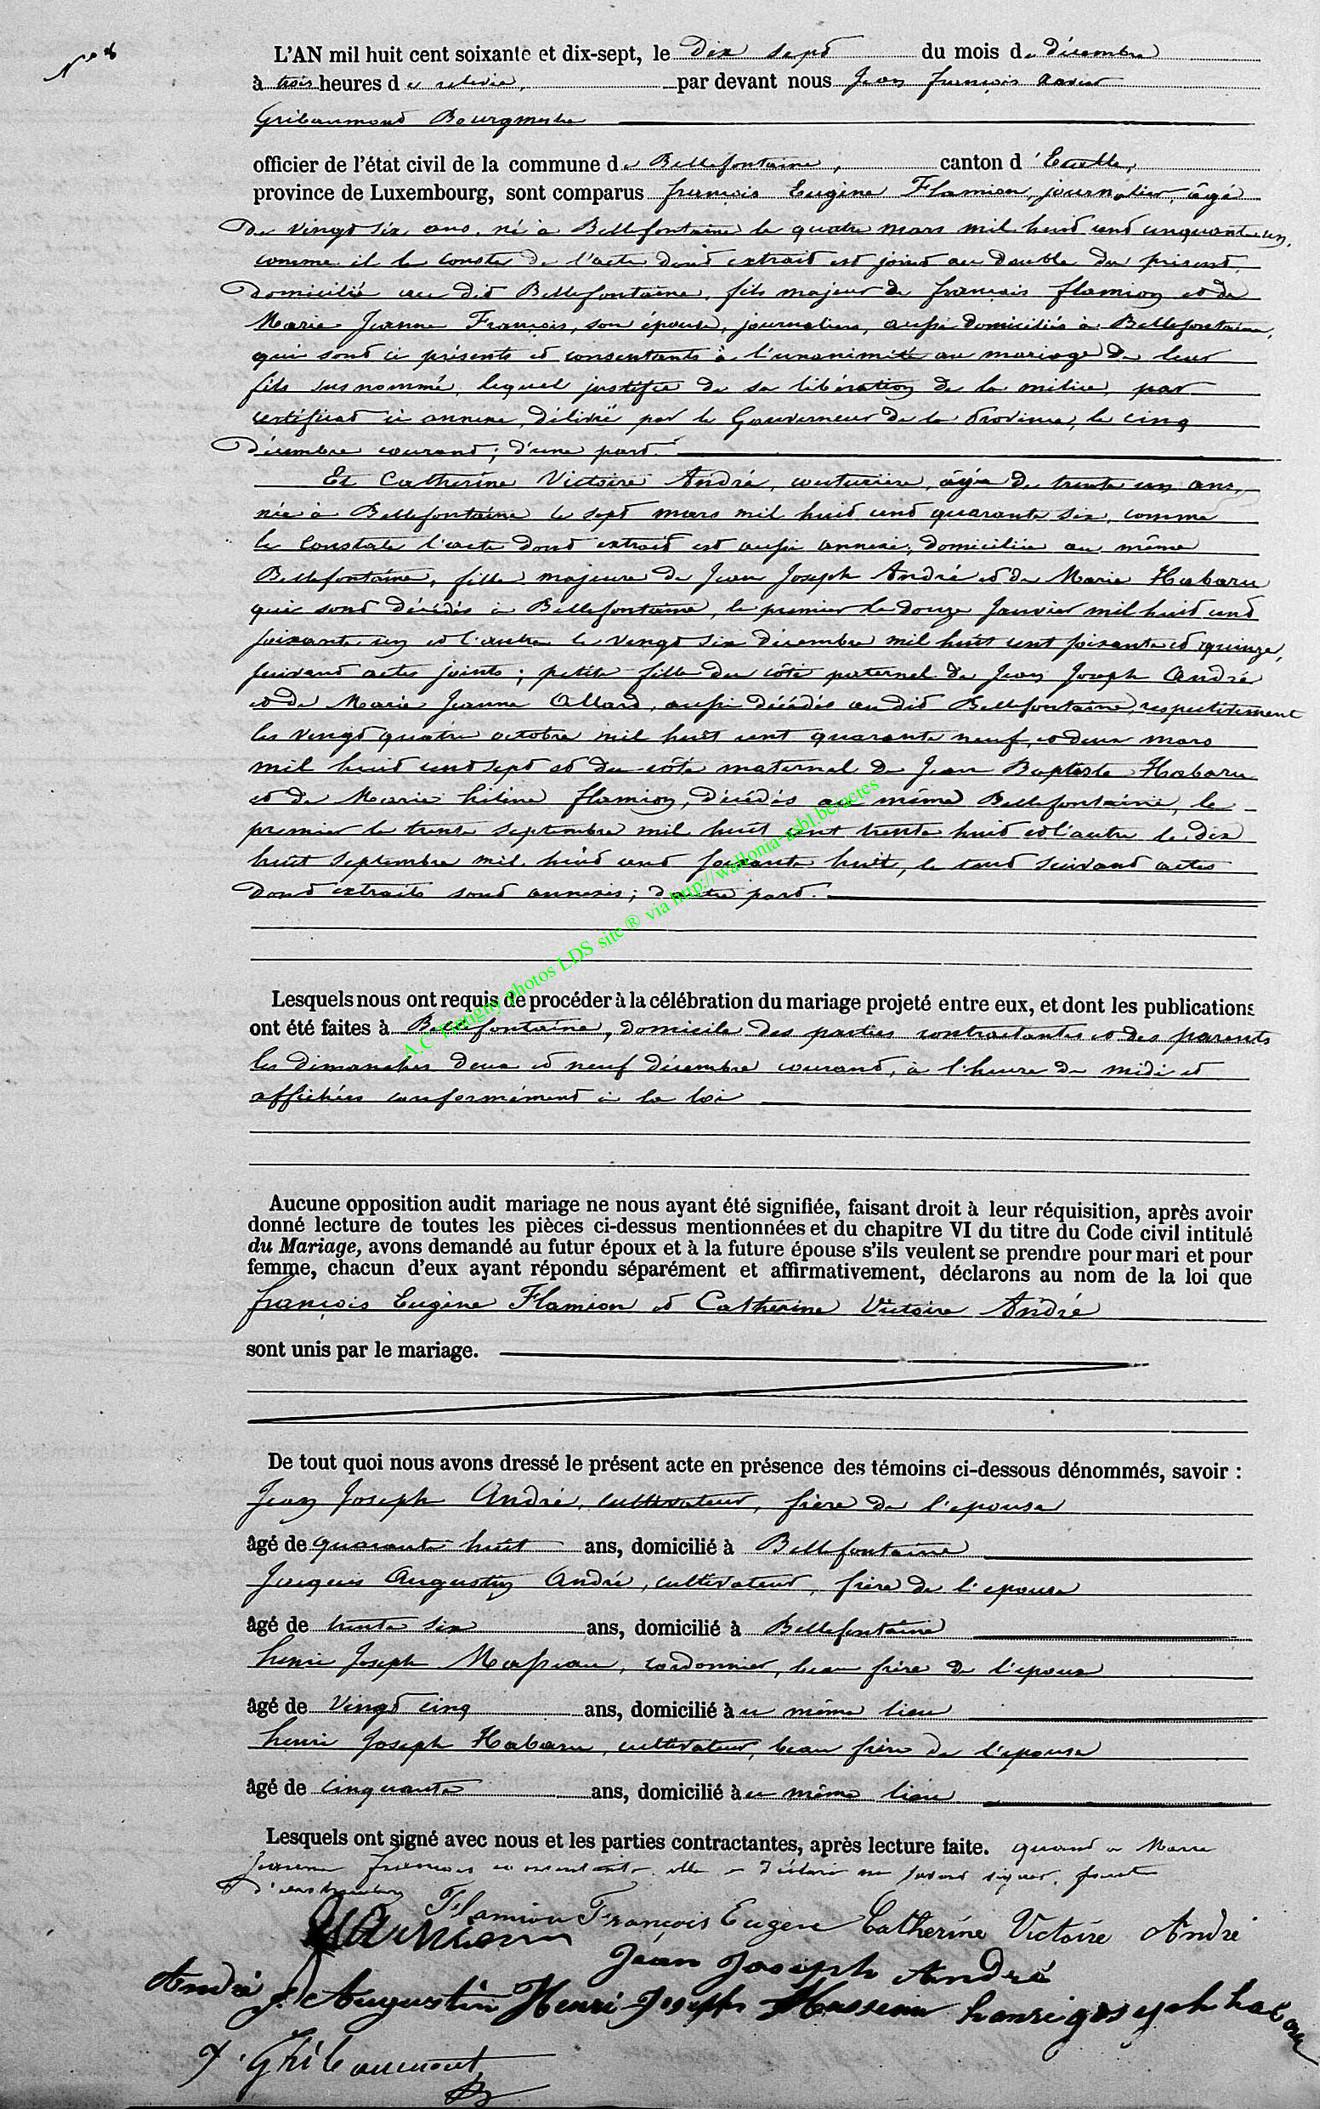 N° 8
L'AN mil huit cent soixante et dix-sept, le dix sept du mois de décembre
à trois heures de relevée, par devant nous Jean françois xavier
Gribaumont Bourgmestre
officier de l'état civil de la commune de Bellefontaine, canton d'Etalle,
province de Luxembourg, sont comparus françois Eugène Flamion, journalier, âgé
de vingt six ans, né à Bellefontaine le quatre mars mil huit cent cinquante un,
comme il le conste de l'acte dont extrait est joint au double du présent,
domicilié au dit Bellefontaine, fils majeur de françois flamion et de
Marie Jeanne François, son épouse, journaliers, aussi domiciliés à Bellefontaine,
qui sont ci présents et consentants à l'unanimité au mariage de leur
fils susnommé, lequel justifie de sa libération de la milice, par
certificat ci annexé, délivré par le Gouverneur de la Province, le cinq
décembre courant; d'une part.
Et Catherine Victoire André, couturière, âgée de trente un ans,
née à Bellefontaine le sept mars mil huit cent quarante six, comme
le constate l'acte dont extrait est aussi annexé; domiciliée au même
Bellefontaine, fille majeure de Jean Joseph André et de Marie Habaru
qui sont décédés à Bellefontaine, le premier le douze Janvier mil huit cent
soixante un et l'autre le vingt six décembre mil huit cent soixante et quinze,
suivant actes joints; petite fille du côté paternel de Jean Joseph André
et de Marie Jeanne Allard, aussi décédés au dit Bellefontaine, respectivement
les vingt quatre octobre mil huit cent quarante neuf, et deux mars
mil huit cent sept et du côté maternel de Jean Baptiste Habaru
et de Marie hélène flamion, décédés au même Bellefontaine, le
premier le trente septembre mil huit cent trente huit et l'autre le dix
huit septembre mil huit cent soixante huit, le tout suivant actes
dont extraits sont annexés; d'autre part.
A.C Tintigny photos LDS site ® via http://wallonia-asbl.be/actes
Lesquels nous ont requis de procéder à la célébration du mariage projeté entre eux, et dont les publications
ont été faites à Bellefontaine, domicile des parties contractantes et des parents
les dimanches deux et neuf décembre courant, à l'heure de midi et
affichées conformément à la loi
Aucune opposition audit mariage ne nous ayant été signifiée, faisant droit à leur réquisition, après avoir
donné lecture de toutes les pièces ci-dessus mentionnées et du chapitre VI du titre du Code civil intitulé
du Mariage, avons demandé au futur époux et à la future épouse s'ils veulent se prendre pour mari et pour
femme, chacun d'eux ayant répondu séparément et affirmativement, déclarons au nom de la loi que
françois Eugène Flamion et Catherine Victoire André
sont unis par le mariage.
De tout quoi nous avons dressé le présent acte en présence des témoins ci-dessous dénommés, savoir :
Jean Joseph André, cultivateur, frère de l'épouse
âgé de quarante huit ans, domicilié à Bellefontaine
Jacques Augustin André, cultivateur, frère de l'épouse
âgé de trente six ans, domicilié à Bellefontaine
henri Joseph Massiau, cordonnier, beau frère de l'époux
âgé de vingt cinq ans, domicilié à u même lieu
henri Joseph Habaru, cultivateur, beau frère de l'épouse
âgé de cinquante ans, domicilié à u même lieu
Lesquels ont signé avec nous et les parties contractantes, après lecture faite. quand a Marie
Jeanne françois elle a déclaré ne savoir signer, faute
d'instruction
Flamion François Eugène Catherine Victoire André
flamion
Jean Joseph André
André J. Augustin Henri Joseph Massiau henri joseph habaru
Gribaumont